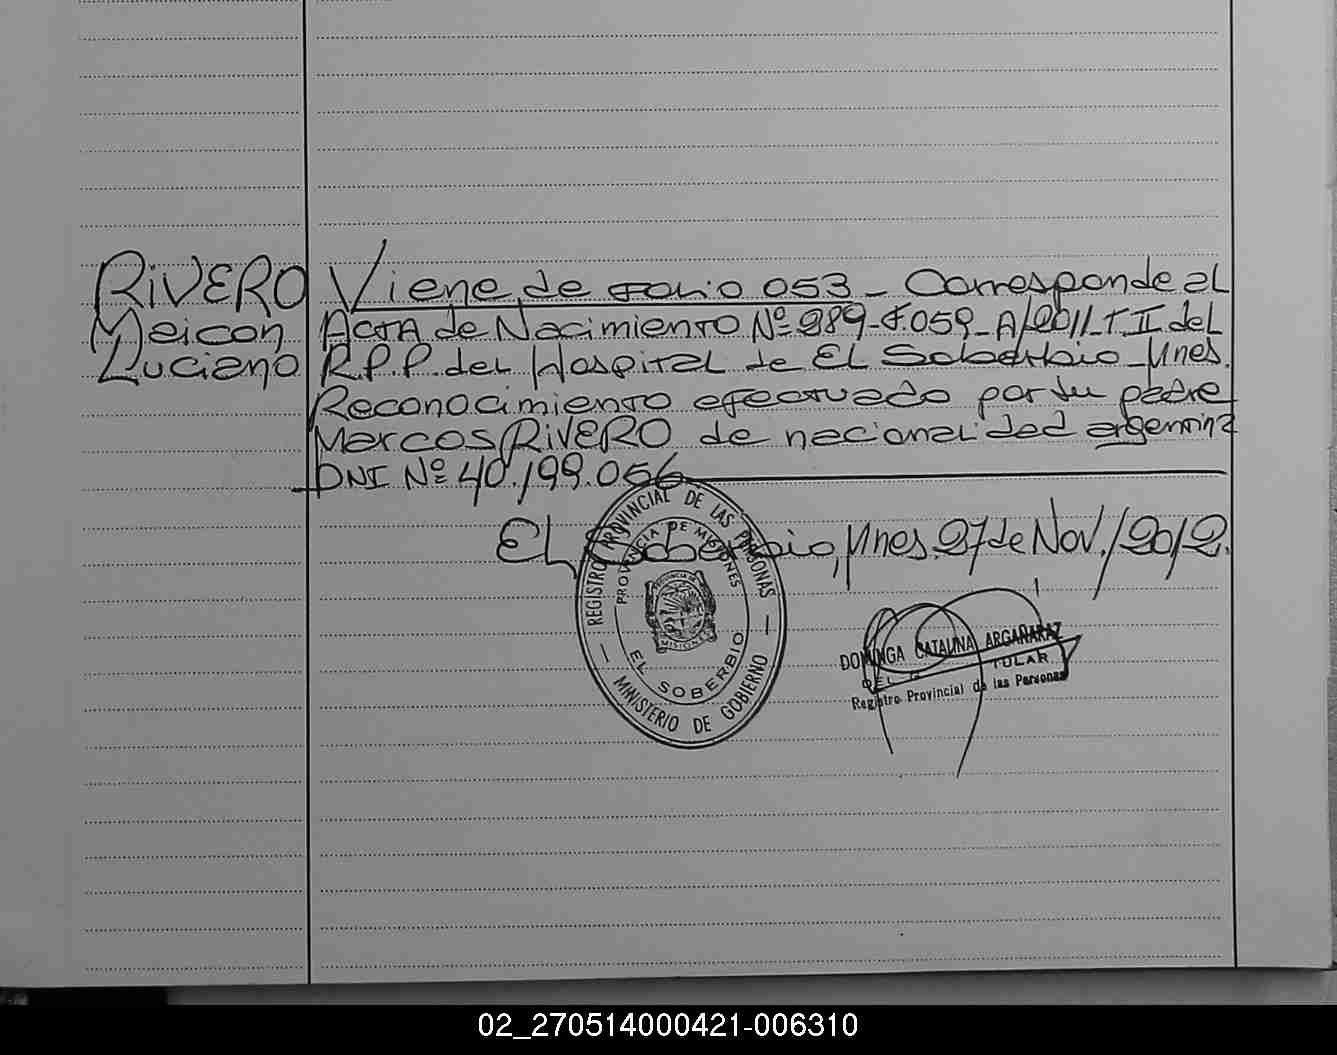 RIVERO Viene de Folio 053_ Corresponde al
Maicon ACTA de Nacimiento Nº 989-F.059_A/2011_T II del
Luciano R.P.P. del Hospital de El Soberbio_Mnes.
Reconocimiento efectuado por su padre
Marcos RIVERO de nacionalidad argentina
DNI Nº 40.199.056
El Soberbio, Mnes. 27 de Nov./2012.
REGISTRO PROVINCIAL DE LAS PERSONAS
PROVINCIA DE MISIONES
MISIONES
EL SOBERBIO
MINISTERIO DE GOBIERNO
DOMINGA CATALINA ARGAÑARAZ
TULAR
Registro Provincial de las Personas
02_270514000421-006310